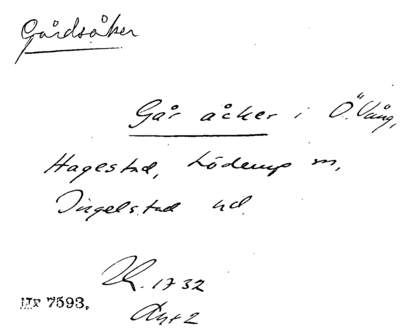 Gårdsåker
Går åcker i Ö. Vång,
Hagestad, Löderup sn,
Ingelstad hd.
LR. 1732
Akt 2
MF 7593.